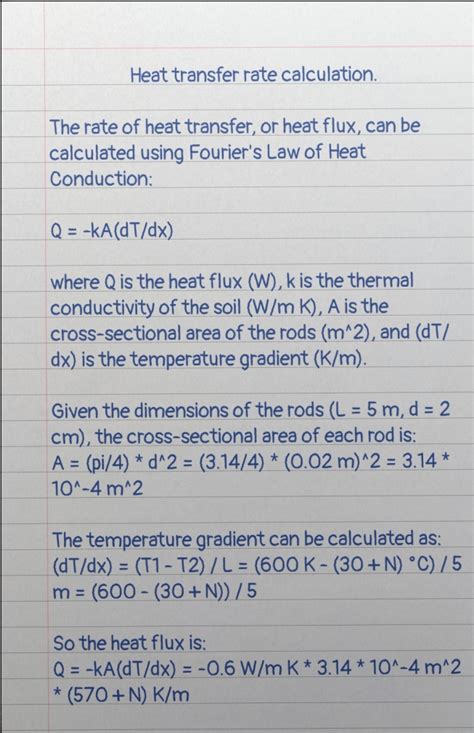 Heat transfer rate calculation.
The rate of heat transfer, or heat flux, can be
calculated using Fourier's Law of Heat
Conduction:
Q = -kA(dT/dx)
where Q is the heat flux (W), k is the thermal
conductivity of the soil (W/m K), A is the
cross-sectional area of the rods (m^2), and (dT/
dx) is the temperature gradient (K/m).
Given the dimensions of the rods (L = 5 m, d = 2
cm), the cross-sectional area of each rod is:
A = (pi/4) * d^2 = (3.14/4) * (0.02 m)^2 = 3.14 *
10^-4 m^2
The temperature gradient can be calculated as:
(dT/dx) = (T1 - T2) / L = (600 K - (30 + N) °C) / 5
m = (600 - (30 + N)) / 5
So the heat flux is:
Q = -kA(dT/dx) = -0.6 W/m K * 3.14 * 10^-4 m^2
* (570 + N) K/m